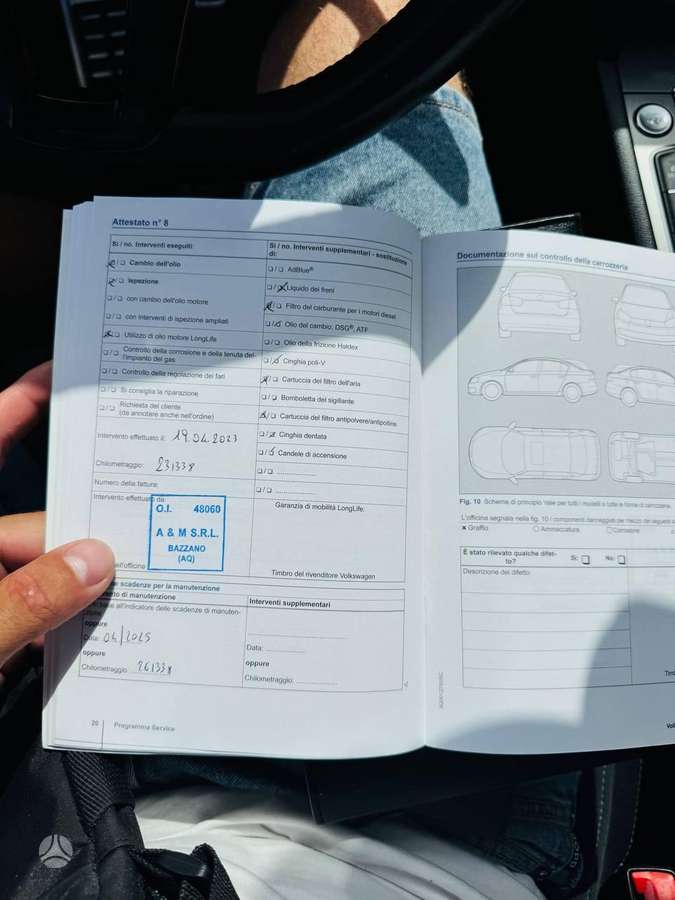 Attestato n° 8
Si / no. Interventi eseguiti:
Cambio dell'olio
Ispezione
con cambio dell'olio motore
con interventi di ispezione ampliati
Utilizzo di olio motore LongLife
Controllo della corrosione e della tenuta dell'impianto del gas
Controllo della regolazione dei fari
Si consiglia la riparazione
Richiesta del cliente
(da annotare anche nell'ordine)
Intervento effettuato il: 19.04.2023
Chilometraggio: 231338
Numero della fattura:
Intervento effettuato da:
O.I. 48060
A & M S.R.L.
BAZZANO
(AQ)
Si / no. Interventi supplementari - sostituzione
di:
AdBlue®
Liquido dei freni
Filtro del carburante per i motori diesel
Olio del cambio, DSG®, ATF
Olio della frizione Haldex
Cinghia poli-V
Cartuccia del filtro dell'aria
Bomboletta del sigillante
Cartuccia del filtro antipolvere/antipolline
Cinghia dentata
Candele di accensione
Garanzia di mobilità LongLife:
Timbro del rivenditore Volkswagen
scadenze per la manutenzione
di manutenzione
all'indicatore delle scadenze di manuten-
oppure
Data: 04/2025
oppure
Chilometraggio: 261338
Interventi supplementari
Data:
oppure
Chilometraggio:
20 Programma Service
Documentazione sul controllo della carrozzeria
Fig. 10 Schema di principio: Vale per tutti i modelli e tutte le forme di carrozzeria.
L'officina segnala nella fig. 10 i componenti danneggiati per mezzo dei seguenti
x Graffio
Ammaccatura
Corrosione
È stato rilevato qualche difet-
to?
Sì:
No:
Descrizione del difetto: